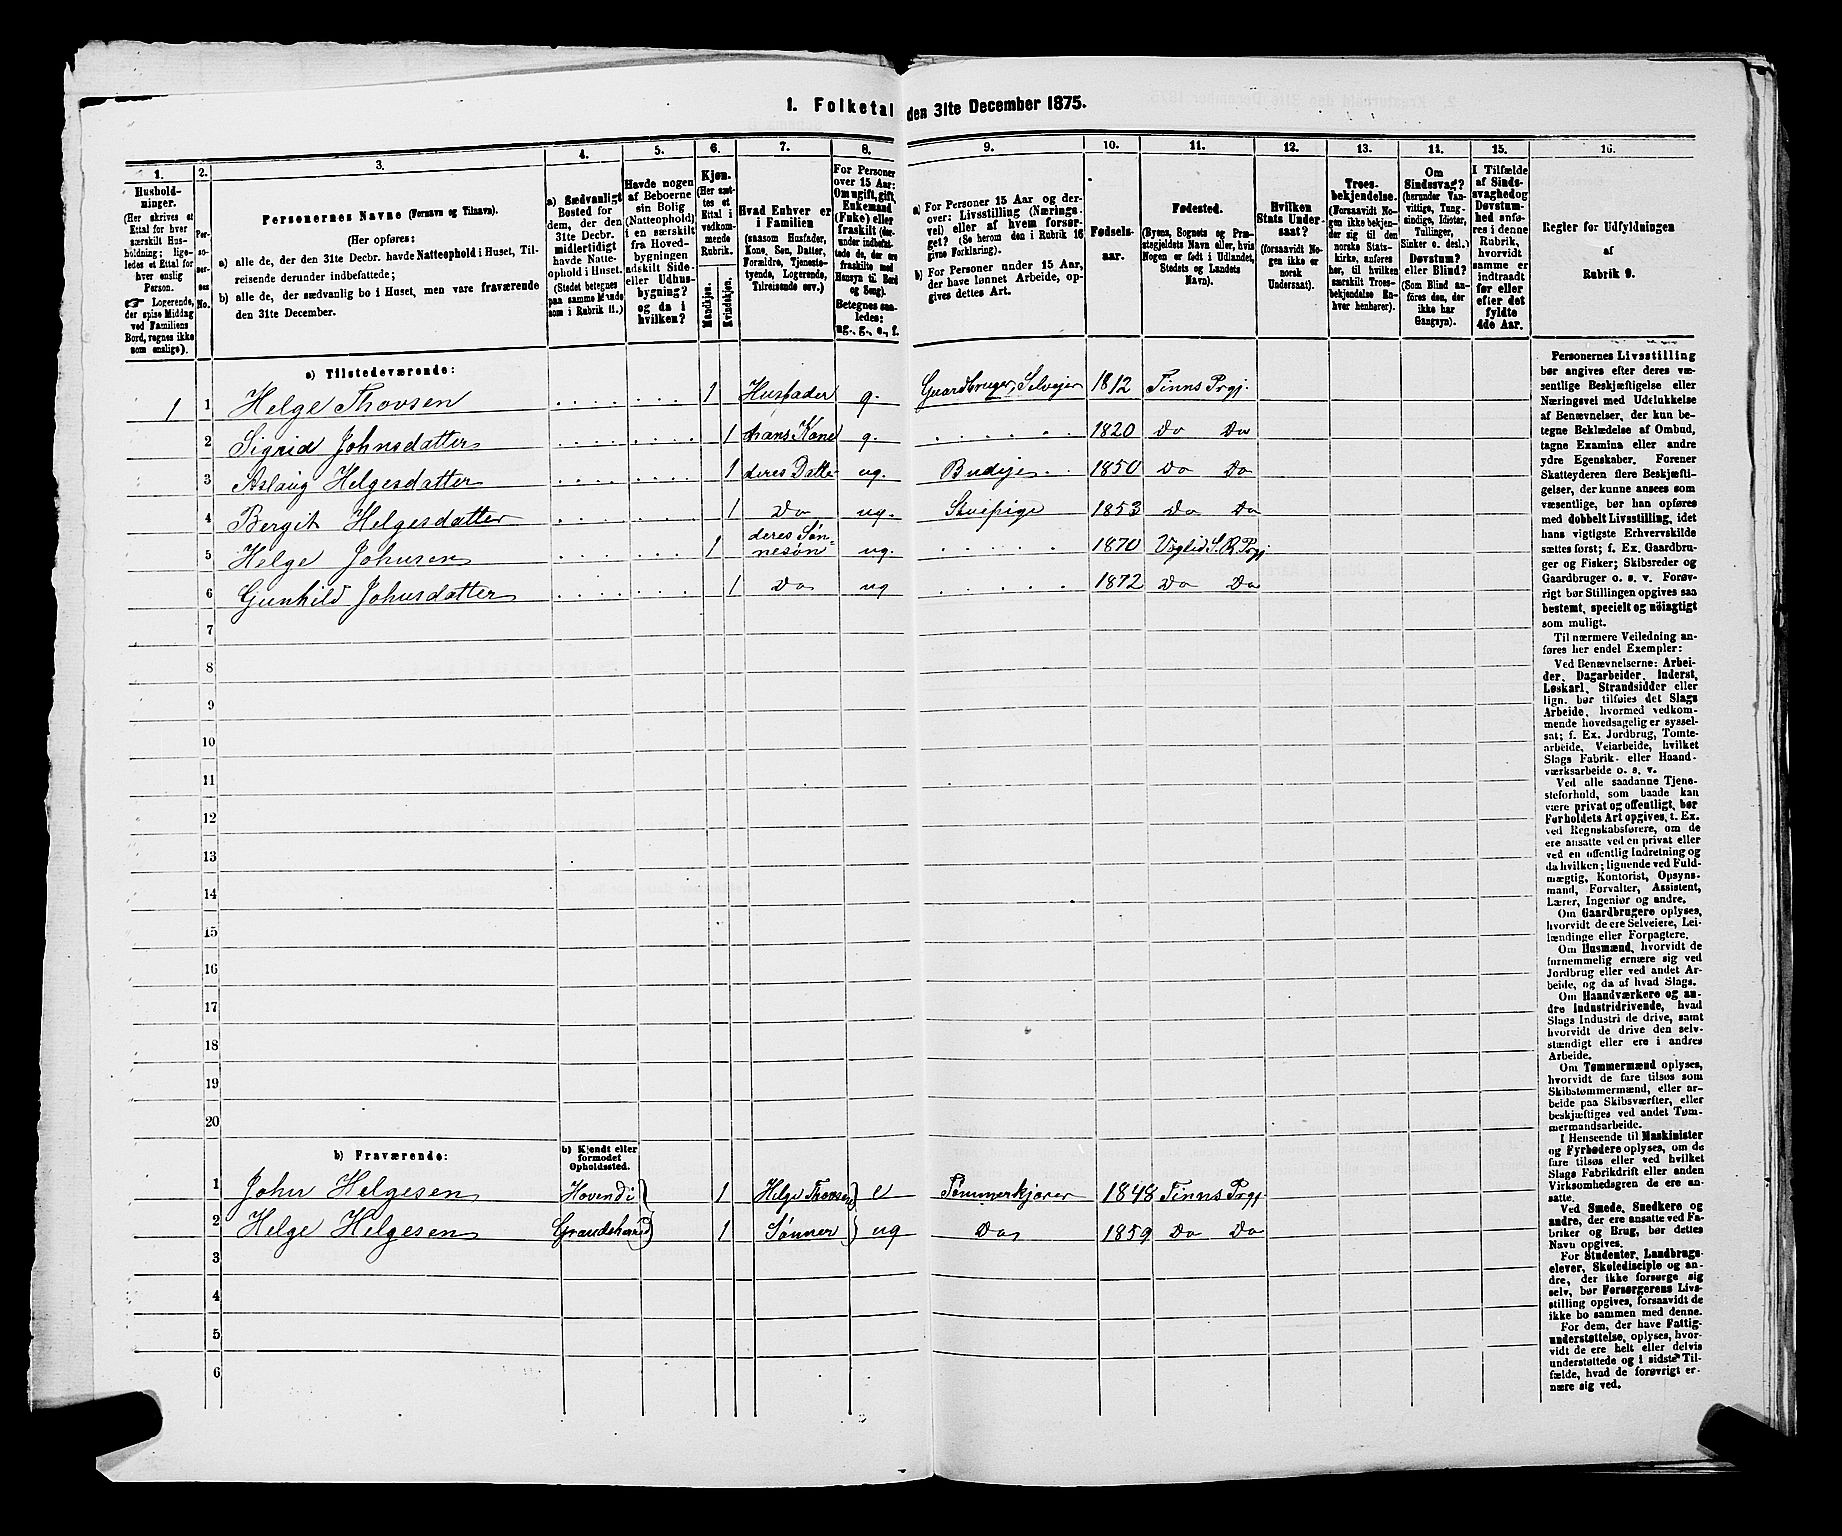 1. Folketal den 31te December 1875.
1. 2. 3. 4. 5. 6. 7. 8. 9. 10. 11. 12. 13. 14. 15. 16.
Hushold-
ninger.
(Her skrives et
Ettal for hver
særskilt Hus-
holdning; lige-
ledes et Ettal for
hver enslig
Person.
☞ Logerende,
der spise Middag
ved Familiens
Bord, regnes ikke
som enslige).
Per-
so-
ner-
nes
No.
Personernes Navne (Fornavn og Tilnavn).
(Her opføres:
a) alle de, der den 31te Decbr. havde Natteophold i Huset, Til-
reisende derunder indbefattede;
b) alle de, der sædvanlig bo i Huset, men vare fraværende
den 31te December.
a) Sædvanligt
Bosted for
dem, der den
31te Decbr.
midlertidigt
havde Natte-
ophold i Huset.
(Stedet betegnes
paa samme Maade
som i Rubrik 11.)
Havde nogen
af Beboerne
sin Bolig
(Natteophold)
i en særskilt
fra Hoved-
bygningen
adskilt Side-
eller Udhus-
bygning?
og da i
hvilken?
Kjøn.
(Her sæt-
tes et
Ettal i
vedkom-
mende
Rubrik.)
Mandkjøn.
Kvindekjøn.
Hvad Enhver er
i Familien
(saasom Husfader,
Kone, Søn, Datter,
Forældre, Tjeneste-
tyende, Logerende,
Tilreisende osv.)
For Personer
over 15 Aar:
Om ugift, gift,
Enkemand
(Enke) eller
fraskilt (der-
under indbefat-
tede de, der ere
fraskilte med
Hensyn til Bord
og Seng).
Betegnes saa-
ledes:
ug., g., e., f.
a) For Personer 15 Aar og der-
over: Livsstilling (Nærings-
vei) eller af hvem forsør-
get? (Se herom den i Rubrik 16
givne Forklaring).
b) For Personer under 15 Aar,
der have lønnet Arbeide, op-
gives dettes Art.
Fødsels-
aar.
Fødested.
(Byens, Sognets og Præ-
stegjeldets Navn eller, hvis
Nogen er født i Udlandet,
Stedets og Landets
Navn).
Hvilken
Stats Under-
saat?
(forsaavidt No-
gen ikke er
norsk
Undersaat).
Troes-
bekjendelse.
(Forsaavidt No-
gen ikke bekjen-
der sig til den
norske Stats-
kirke, anføres
her, til hvilken
særskilt Troes-
bekjendelse En-
hver henhører).
Om
Sindssvag?
(herunder Van-
vittige, Tung-
sindige, Idioter,
Tullinger,
Sinker o. desl.)
Døvstum?
eller Blind?
(Som Blind an-
føres den, der
ikke har
Gangsyn).
I Tilfælde
af Sinds-
svaghed og
Døvstum-
hed anfø-
res i denne
Rubrik,
hvorvidt
samme er
indtraadt
før eller
efter det
fyldte
4de Aar.
Regler for Udfyldningen
af
Rubrik 9.
a) Tilstedeværende:
1 1 Helge Thovsen 1 Husfader g. Gaardbruger, Selveier 1812 Tinns Prgj.
2 Sigrid Johnsdatter 1 hans Kone g. 1820 Do Do
3 Aslaug Helgesdatter 1 deres Datter ug. Budeje 1850 Do Do
4 Bergit Helgesdatter 1 Do ug. Stuepige 1853 Do Do
5 Helge Johnsen 1 deres Søn-
nesøn ug. 1870 Veglid S. R. Prgj
6 Gunhild Johnsdatter 1 Do ug 1872 Do Do
7
8
9
10
11
12
13
14
15
16
17
18
19
20
b) Fraværende:
b) Kjendt eller
formodet
Opholdssted.
1 John Helgesen Hovendi 1 Helge Thovsen e Tømmerkjører 1848 Tinns Prgj
2 Helge Helgesen Graudsherred 1 Sønner ug Do 1859 Do Do
3
4
5
6
Personernes Livsstilling
bør angives efter deres væ-
sentlige Beskjæftigelse eller
Næringsvei med Udelukkelse
af Benævnelser, der kun be-
tegne Beklædelse af Ombud,
tagne Examina eller andre
ydre Egenskaber. Forener
Skatteyderen flere Beskjæfti-
gelser, der kunne ansees som
væsentlige, bør han opføres
med dobbelt Livsstilling, idet
hans vigtigste Erhvervskilde
sættes først; f. Ex. Gaardbru-
ger og Fisker; Skibsreder og
Gaardbruger o. s. v. Forøv-
rigt bør Stillingen opgives saa
bestemt, specielt og nøiagtigt
som muligt.
Til nærmere Veiledning an-
føres her endel Exempler:
Ved Benævnelserne: Arbei-
der, Dagarbeider, Inderst,
Løskarl, Strandsidder eller
lign. bør tilføies det Slags
Arbeide, hvormed vedkom-
mende hovedsagelig er syssel-
sat; f. Ex. Jordbrug, Tomte-
arbeide, Veiarbeide, hvilket
Slags Fabrik- eller Haand-
værksarbeide o. s. v.
Ved alle saadanne Tjene-
steforhold, som baade kan
være privat og offentligt, bør
Forholdets Art opgives, t. Ex.
ved Regnskabsførere, om de
ere ansatte ved en privat eller
ved en offentlig Indretning og
da hvilken; lignende ved Fuld-
mægtig, Kontorist, Opsyns-
mand, Forvalter, Assistent,
Lærer, Ingeniør og andre.
Om Gaardbrugere oplyses,
hvorvidt de ere Selveiere, Lei-
lændinge eller Forpagtere.
Om Husmænd, hvorvidt de
fornemmelig ernære sig ved
Jordbrug eller ved andet Ar-
beide, og da af hvad Slags.
Om Haandværkere og an-
dre Industridrivende, hvad
Slags Industri de drive, samt
hvorvidt de drive den selv-
stændigt eller ere i andres
Arbeide.
Om Tømmermænd oplyses,
hvorvidt de fare tilsøs som
Skibstømmermænd, eller ar-
beide paa Skibsværfter, eller
beskjæftiges ved andet Tøm-
mermandsarbeide.
I Henseende til Maskinister
og Fyrbødere oplyses, om de
fare tilsøs eller ved hvilket
Slags Fabrikdrift eller anden
Virksomhedsgren de ere an-
satte.
Ved Smede, Snedkere og
andre, der ere ansatte ved Fa-
briker og Brug, bør dettes
Navn opgives.
For Studenter, Landbrugs-
elever, Skoledisciple og an-
dre, der ikke forsørge sig
selv, bør Forsørgerens Livs-
stilling opgives, forsaavidt de
ikke bo sammen med denne.
For dem, der have Fattig-
understøttelse, oplyses, hvor-
vidt de ere helt eller delvis
understøttede og i sidste Til-
fælde, hvad de forøvrigt er-
nære sig ved.